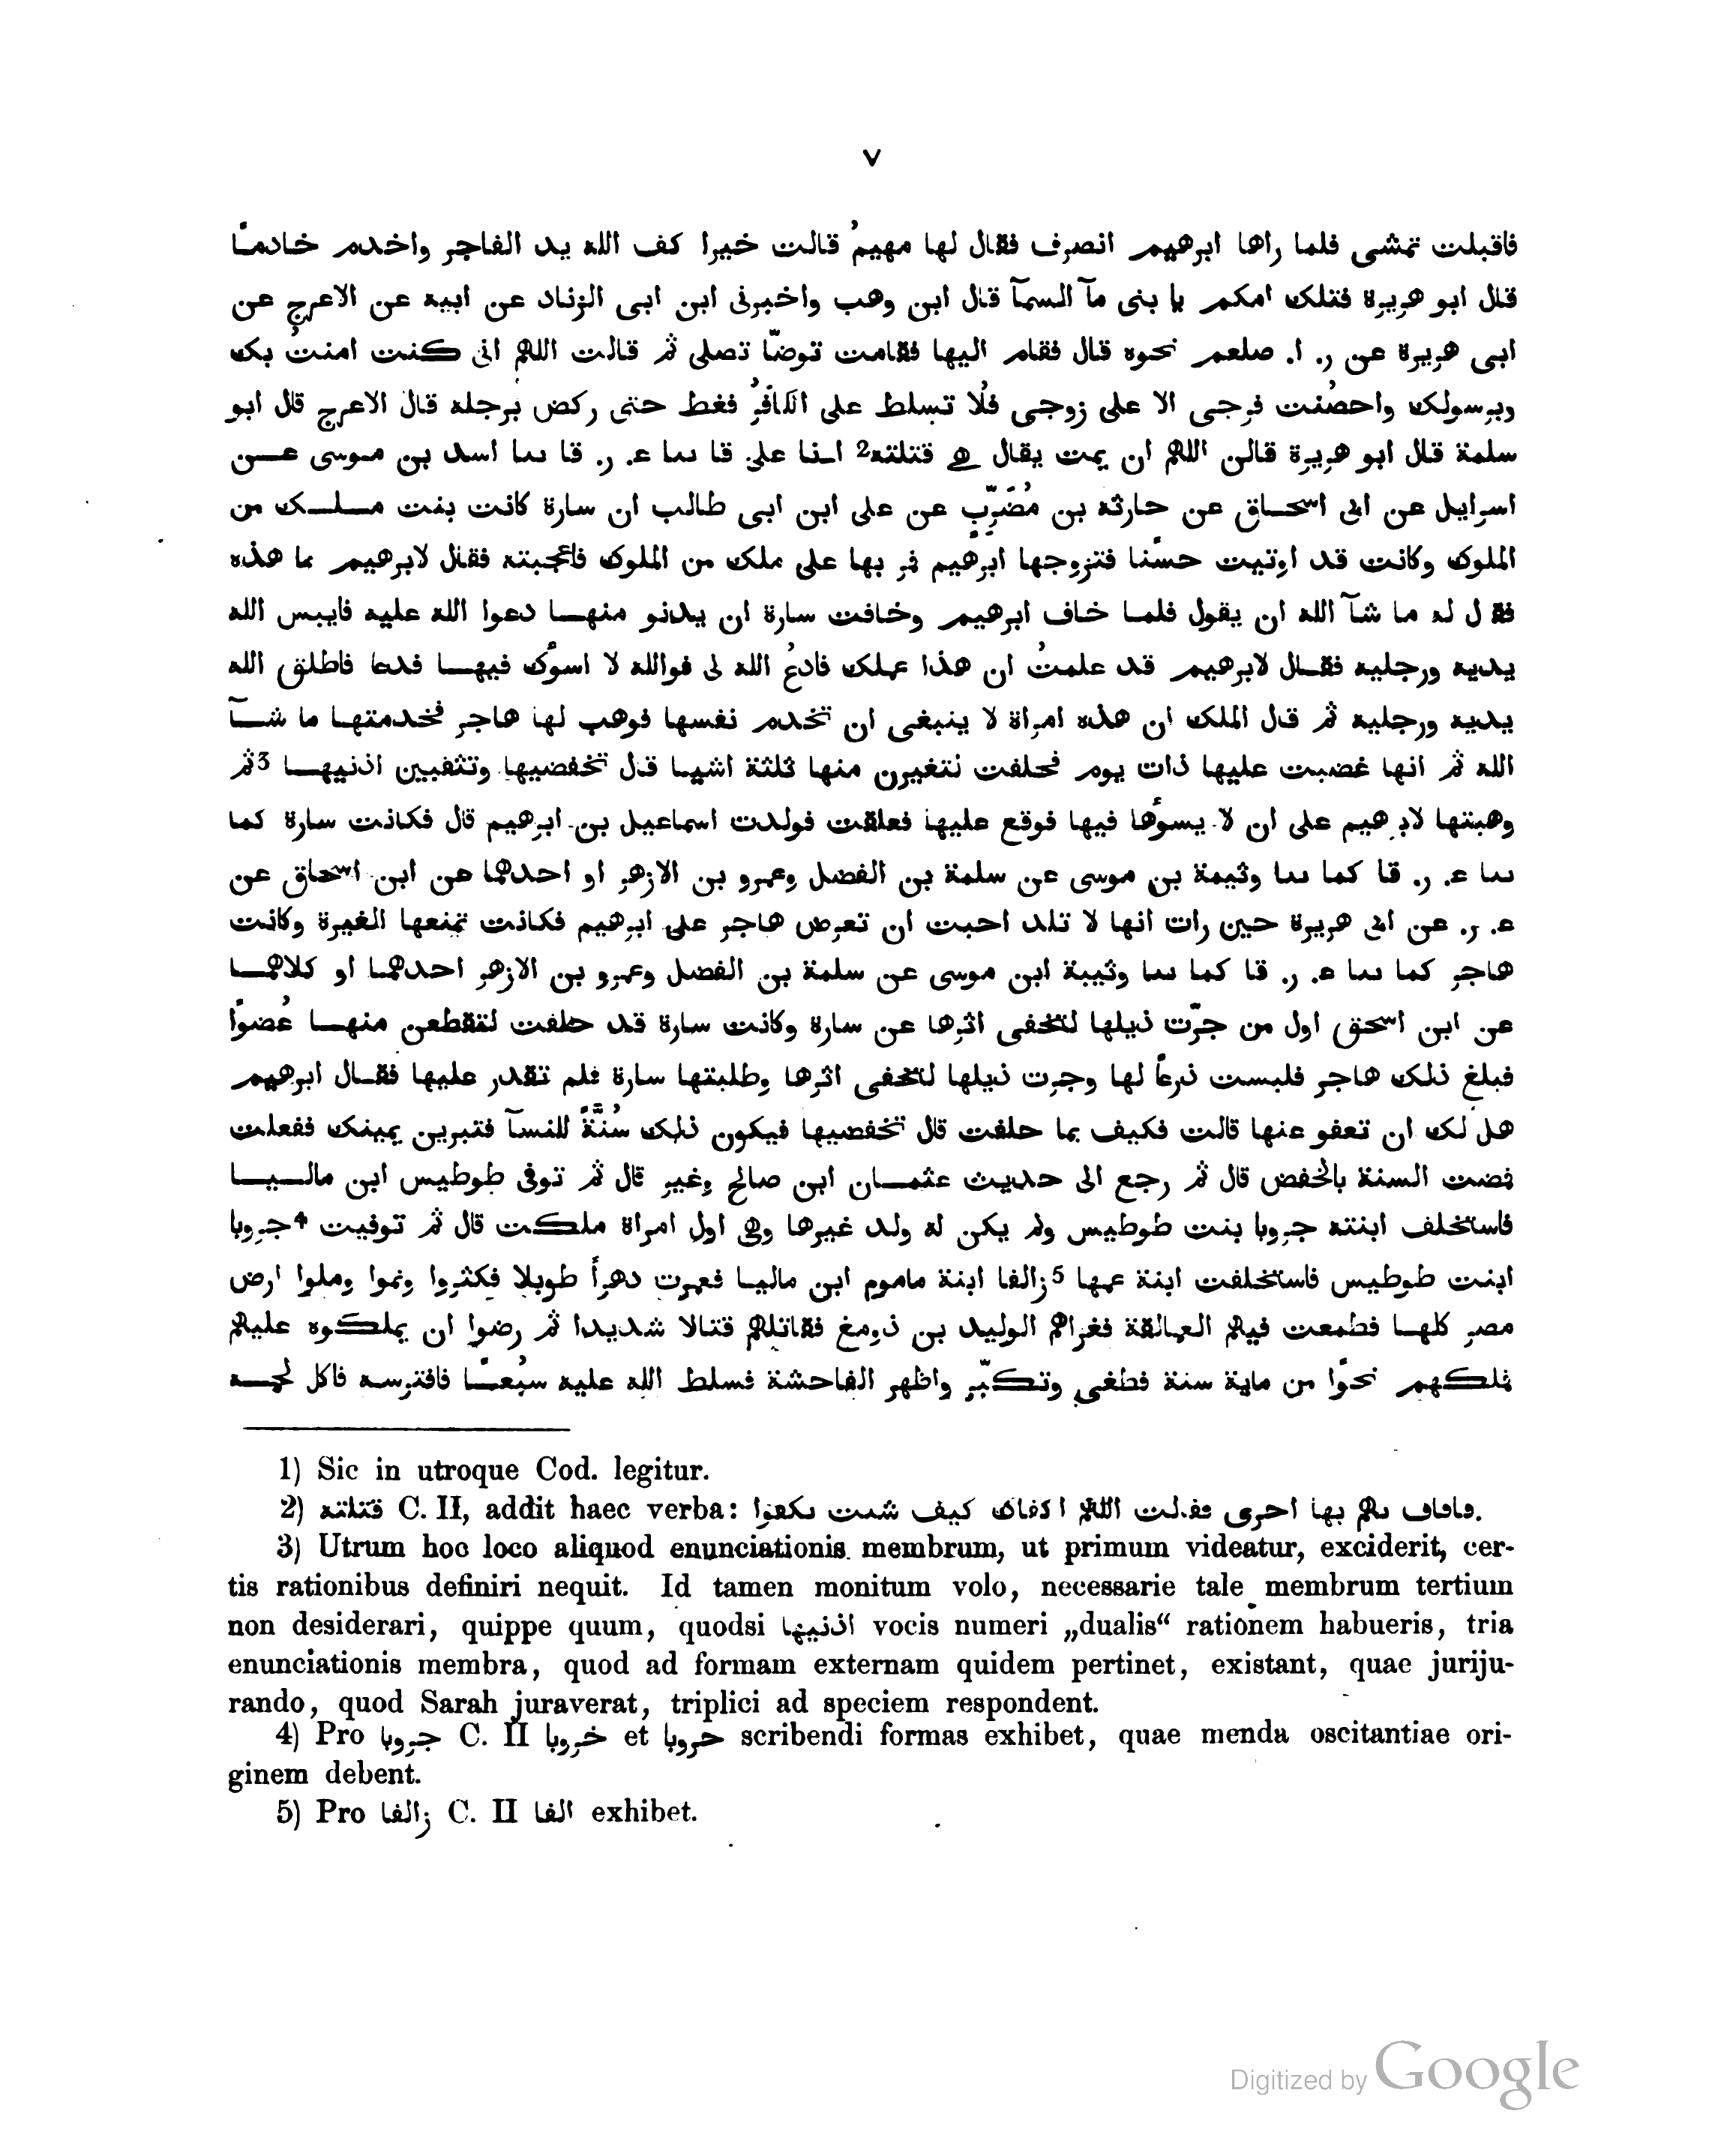 ٧
فاقبلت تمشى فلما راها ابرهيم انصرف فقال لها مهيمُ قالت خيرا كف الله يد الفاجر واخدم خادمًا
قال ابو هريرة فتلك امكم يا بنى مآ السمآ قال ابن وهب واخبرنى ابن ابى الزناد عن ابيه عن الاعرج عن
ابى هريرة عن ر. ا. صلعم نحوه قال فقام اليها فقامت توضّا تصلى ثم قالت اللهم انى كنت امنتُ بك
وبرسولك واحصُنت فرجى الا على زوجى فلُا تسلط على الكافرُ فغط حتى ركض برجله قال الاعرج قال ابو
سلمة قال ابو هريرة قالن اللهم ان يمت يقال هى قتلته2 انا على قا ىىا ع. ر. قا ىىا اسد بن موسى عن
اسرايل عن ابى اسحاق عن حارثه بن مُضَرِّب عن على ابن ابى طالب ان سارة كانت بنت ملك من
الملوك وكانت قد اوتيت حسنًا فتزوجها ابرهيم فمر بها على ملك من الملوك فاعجبته فقال لابرهيم ما هذه
فقال له ما شآ الله ان يقول فلما خاف ابرهيم وخافت سارة ان يدنو منهما دعوا الله عليه فايبس الله
يديه ورجليه فقال لابرهيم قد علمتُ ان هذا عملك فادعُ الله لى فوالله لا اسوُك فيها فدعا فاطلق الله
يديه ورجليه ثم قال الملك ان هذه امراة لا ينبغى ان تخدم نفسها فوهب لها هاجر فخدمتها ما شآ
الله ثم انها غضبت عليها ذات يوم فحلفت لتغيرن منها ثلثة اشيا قال تخفضيها وتثقبين اذنيها 3ثم
وهبتها لابرهيم على ان لا يسوُها فيها فوقع عليها فعلقت فولدت اسماعيل بن ابرهيم قال فكانت سارة كما
ىىا ع. ر. قا كما ىىا وثيمة بن موسى عن سلمة بن الفضل وعمرو بن الازهر او احدهما عن ابن اسحاق عن
ع. ر. عن ابى هريرة حين رات انها لا تلد احبت ان تعرض هاجر على ابرهيم فكانت تمنعها الغيرة وكانت
هاجر كما ىىا ع. ر. قا كما ىىا وثيبة ابن موسى عن سلمة بن الفضل وعمرو بن الازهر احدهما او كلاهما
عن ابن اسحق اول من جرّت ذيلها لتخفى اثرها عن سارة وكانت سارة قد حلفت لتقطعن منها عُضوًا
فبلغ ذلك هاجر فلبست ذرعاً لها وجرت ذيلها لتخفى اثرها وطلبتها سارة فلم تقدر عليها فقال ابرهيم
هل لك ان تعفو عنها قالت فكيف بما حلفت قال تخفضيها فيكون ذلك سُنَّةً للنسآ فتبرين يمينك ففعلت
فضت السنة بالخفض قال ثم رجع الى حديث عثمان ابن صالح وغير قال ثم توفى طوطيس ابن ماليا
فاستخلف ابنته جروبا بنت طوطيس ولم يكن له ولد غيرها وهى اول امراة ملكت قال ثم توفيت 4جروبا
ابنت طوطيس فاستخلفت ابنة عمها 5زالفا ابنة ماموم ابن ماليا فعمرت دهراً طويلا فكثروا ونموا وملوا ارض
مصر كلها فطمعت فيهم العمالقة فغزاهم الوليد بن ذومغ فقاتلهم قتالا شديدا ثم رضوا ان يملكوه عليهم
فلكهم نحوًا من ماية سنة فطغى وتكبّر واظهر الفاحشة فسلط الله عليه سبُعًا فافترسه فاكل لحمه
1) Sic in utroque Cod. legitur.
2) قتلته C. II, addit haec verba: بها احرى كيف شىت
3) Utrum hoc loco aliquod enunciationis membrum, ut primum videatur, exciderit, cer-
tis rationibus definiri nequit. Id tamen monitum volo, necessarie tale membrum tertium
non desiderari, quippe quum, quodsi اذنيها vocis numeri „dualis“ rationem habueris, tria
enunciationis membra, quod ad formam externam quidem pertinet, existant, quae juriju-
rando, quod Sarah juraverat, triplici ad speciem respondent.
4) Pro جروبا C. II خروبا et حروبا scribendi formas exhibet, quae menda oscitantiae ori-
ginem debent.
5) Pro زالفا C. II الفا exhibet.
Digitized by Google